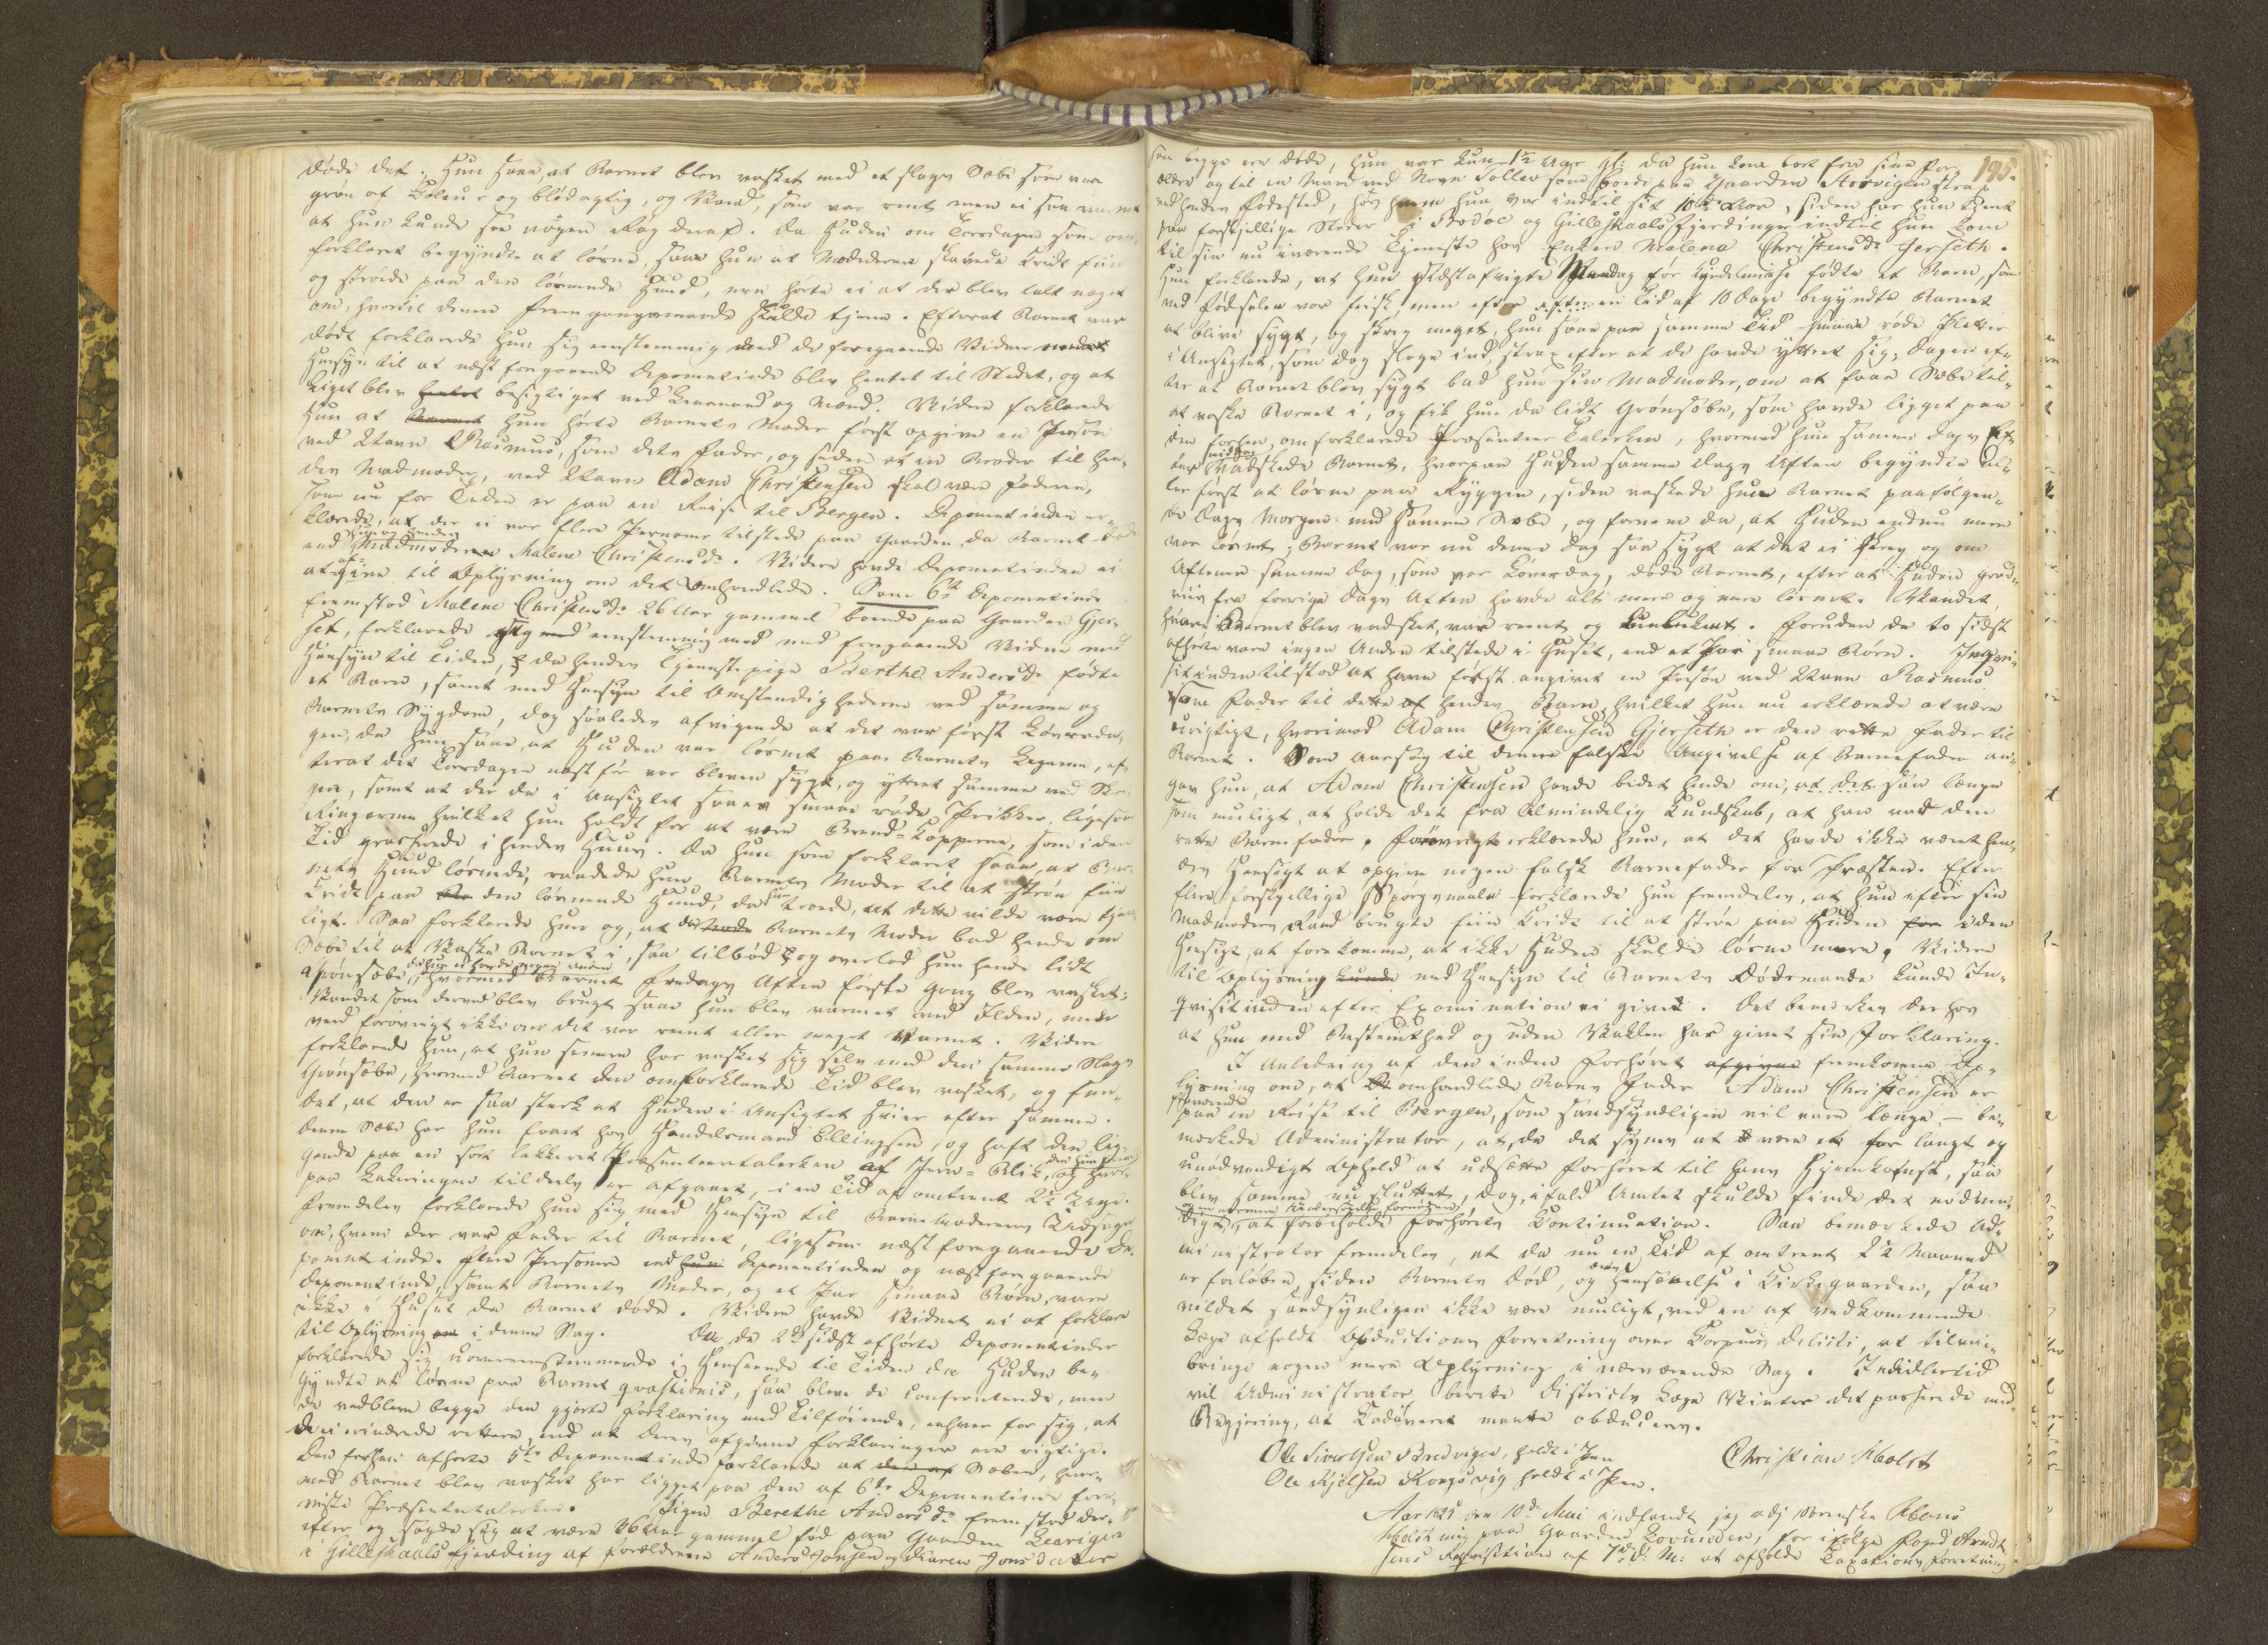 døde det. Hun saae, at Barnet blev vasket med et slags Sæbe som var
grøn af Coleur og blødagtig, og Vand, som var reent men ei saa varmt
at hun kunde see nogen Røg deraf. Da Huden om Torsdagen som om-
forklaret begyndte at løsne, saae hun at Moderen skavede Kridt fiin
og strøede paa den løsnende Hud, men hørte ei at der blev talt noget
om, hvortil denne Fremgangsmaade skulde tjene. Efterat Barnet var
dødt forklarede hun sig eenstemmig med de foregaaende Vidner med
Hensyn til at næst foregaaende Deponentinde blev hentet til Stedet, og at
Liget blev besigtiget ved Lensmand og Mænd. Videre forklarede
hun at hun hørte Barnets Moder først opgive en Person
ved Navn Rasmus, som dets Fader, og siden at en Broder til hen-
des Madmoder, ved Navn Adam Christensen skal være Faderen,
som nu for Tiden er paa en Reise til Bergen. Deponentinden er-
klærede, at der ei var flere Personer tilstede paa Gaarden, da Barnet døde
end Madmoderen Malene Christensdr. Videre havde Deponentinden ei
at afgive til Oplysning om det Omhandlede. Som 6te Deponentinde
fremstod Malene Christensdr 26 Aar gammel boende paa Gaarden Gjer-
set, forklarede sig eenstemmig med foregaaende Vidne med
Hensyn til Tiden, da hendes Tjenestepige Berthe Andersdr fødte
et Barn, samt med Hensyn til Omstændighederne ved samme og
Barnets Sygdom, dog saaledes afvigende at det var først Løverda-
gen, da hun saae, at Huden var løsnet paa Barnets Legeme, ef-
terat det Torsdagen næst før var bleven sygt, og yttret samme ved Skri-
gen, samt at der da i Ansigtet saaes smaae røde Prikker, ligesom
Ringorme hvilket hun holdt for at være Brend-Kopperne, som i den
Tid grasserede i hendes Huus. Da hun som forklaret saae, at Bar-
nets Hud løsnede, raadede hun Barnets Moder til at strøe fiin
Kridt paa den løsnende Hud, da hun troede, at dette vilde være tjen-
ligt. Saa forklarede hun og, at da Barnets Moder bad hende om
Sæbe til at vaske Barnet i, saa tilbød og overlod hun hende lidt
Grønsæbe, da hun ei havde nogen anden hvormed Barnet Fredags Aften første Gang blev vasket;
Vandet som derved blev brugt saae hun blev varmet ved Ilden, men
veed forøvrigt ikke om det var reent eller meget varmt. Videre
forklarede hun, at hun senere har vasket sig selv med den samme Slags
Grønsæbe, hvormed Barnet den omforklarede Tid blev vasket, og fun-
det, at den er saa stærk at Huden i Ansigtet svier efter samme.
Denne Sæbe har hun faaet hos Handelsmand Ellingsen, og haft den lig-
gende paa en sort lakkeret Præsenteertalerken af Jern-Blik,
paa Lakeringen tildeels er afgaaet, i en Tid af omtrent 2½ Uge.
Fremdeles forklarede hun sig med Hensyn til Barnemoderens Udsigende
om, hvem der var Fader til Barnet, ligesom næst foregaaende De-
ponentinde. Flere Personer end Deponentinden og næst foregaaende
Deponentinde, samt Barnets Moder, og et Par smaae Børn, vare
ikke i Huset da Barnet døde. Videre havde Vidnet ei at forklare
til Oplysning i denne Sag. Da de 2de sidst afhørte Deponentinder
forklarede sig uovereensstemmende i Henseende til Tiden da Huden be-
gyndte at løsne paa Barnet qvæstionis, saa bleve de confronterede, men
de vedbleve begge den gjorte Forklaring med Tilføiende, enhver for sig, at
de ei mindedes rettere, end at deres afgivne Forklaringer ere rigtige.
Den forhen afhørte 5te Deponentinde forklarede at Sæben, hvor-
med Barnet blev vasket har ligget paa den af 6te Deponentinde for-
viste Præsenteertalerken. Pigen Berethe Andersdr fremstod der-
efter og sagde sig at være 26 Aar gammel, født paa Gaarden
i Gilleskaals Fjerding af Forældrene Anders Jonsen og Karen Jonsdatter
195.
som begge ere døde, hun var kun 1½ Aar gl: da hun kom bort fra sine For-
ældre og til en Mand ved Navn Tollev som boede paa Gaarden Arsvigen strax
ved hendes Fødested, hos hvem hun var indtil sit 10de Aar, siden har hun tjent
paa forskjellige Steder i Bodøe og Gilleskaals Fjerdinger indtil hun kom
til sin nu iværende Tjeneste hos Enken Malena Christensdr Gerseth.
Hun forklarede, at hun sidstafvigte Mandag før Kyndelmisse fødte et Barn, som
ved Fødselen var frisk, men efter en Tid af 10 Dage begyndte Barnet
at blive sygt, og skreg meget, hun saae paa samme Tid smaae røde Pletter
i Ansigtet, som dog sloge ind, strax efter at de havde yttret sig. Dagen ef-
ter at Barnet blev sygt bad hun sin Madmoder, om at faae Sæbe til
at vaske Barnet i, og fik hun da lidt Grønsæbe, som havde ligget paa
den forhen omforklarede Præsenteer Talerken, hvormed hun samme Dags Ef-
termiddag vadskede Barnet, hvorpaa Huden samme Dags Aften begyndte al-
ler først at løsne paa Ryggen, siden vaskede hun Barnet paafølgen-
de Dags Morgen med samme Sæbe, og fornam da, at Huden endnu mere
var løsnet; Barnet var nu denne Dag saa sygt at det ei skreg og om
Aftenen samme Dag, som var Løverdag, døde Barnet, efter at Huden grad-
viis fra forrige Dags Aften havde alt mere og mere løsnet. Vandet,
hvori Barnet blev vadsket, var reent og kunlunkent. Foruden de to sidst
afhørte vare ingen Anden tilstede i Huset, end et Par smaae Børn. Inqvi-
sitinden tilstod at have først angivet en Person ved Navn Rasmus
som Fader til dette hendes Barn, hvilket hun nu erklærede at være
urigtigt, hvorimod Adam Christensen Gjerseth er den rette Fader til
Barnet. Som Aarsag til denne falske Angivelse af Barnefader an-
gav hun, at Adam Christensen havde bedet hende om, at det saa længe
som muligt, at holde det fra Almindelig Kundskab, at han var den
rette Barnefader. Forøvrigt erklærede hun, at det havde ikke været hen-
des Hensigt at opgive nogen falsk Barnefader for Præsten. Efter
flere forskjellige Spørgsmaale forklarede hun fremdeles, at hun efter sin
Madmoders Raad brugte fiin Kridt til at strøe paa Huden i den
Hensigt, at forekomme, at ikke Huden skulde løsne mere. Videre
til Oplysning med Hensyn til Barnets Dødsmaade kunde In-
qvisitinden efter Examination ei give. Det bemærkes derhos
at hun med Bestemthed og uden Vaklen har givet sin Forklaring.
I Anledning af den under Forhøret fremkomne Op-
lysning om, at omhandlede Barns Fader Adam Christensen er
forreist paa en Reise til Bergen, som sandsynligen vil vare længe, — be-
mærkede Administrator, at, da det synes at være et for langt og
unødvendigt Ophold at udsætte Forhøret til hans Hjemkomst, saa
blev samme nu sluttet, dog, ifald Amtet skulde finde det nødven-
digt, at forbeholde Forhørets Continuation. Saa bemærkede Ad-
ministrator fremdeles, at da nu en Tid af omtrent 2½ Maaned
er forløben, siden Barnets Død, og dets Hensættelse i Kirkegaarden, saa
vil det sandsynligen ikke være muligt, ved en af vedkommende
Læge afholdt Obductions Forretning over Corpus delicti, at tilveie-
bringe nogen mere Oplysning i nærværende Sag. Imidlertid
vil Administrator berette Districts Læge Winter det passerede med
Begjering, at Cadaveret maatte obduceres.
Ole Sivertsen Bredvigen, holdt i Pen
Ole Kjelsen Kongsvig holdt i Pen.
Christian Aholst
Aar 1835 den 10de Mai indfandt jeg adj Sorenskr
mig paa Gaarden for ifølge Foged
Requisition af 7de d: M: at afholde Taxations Forretning